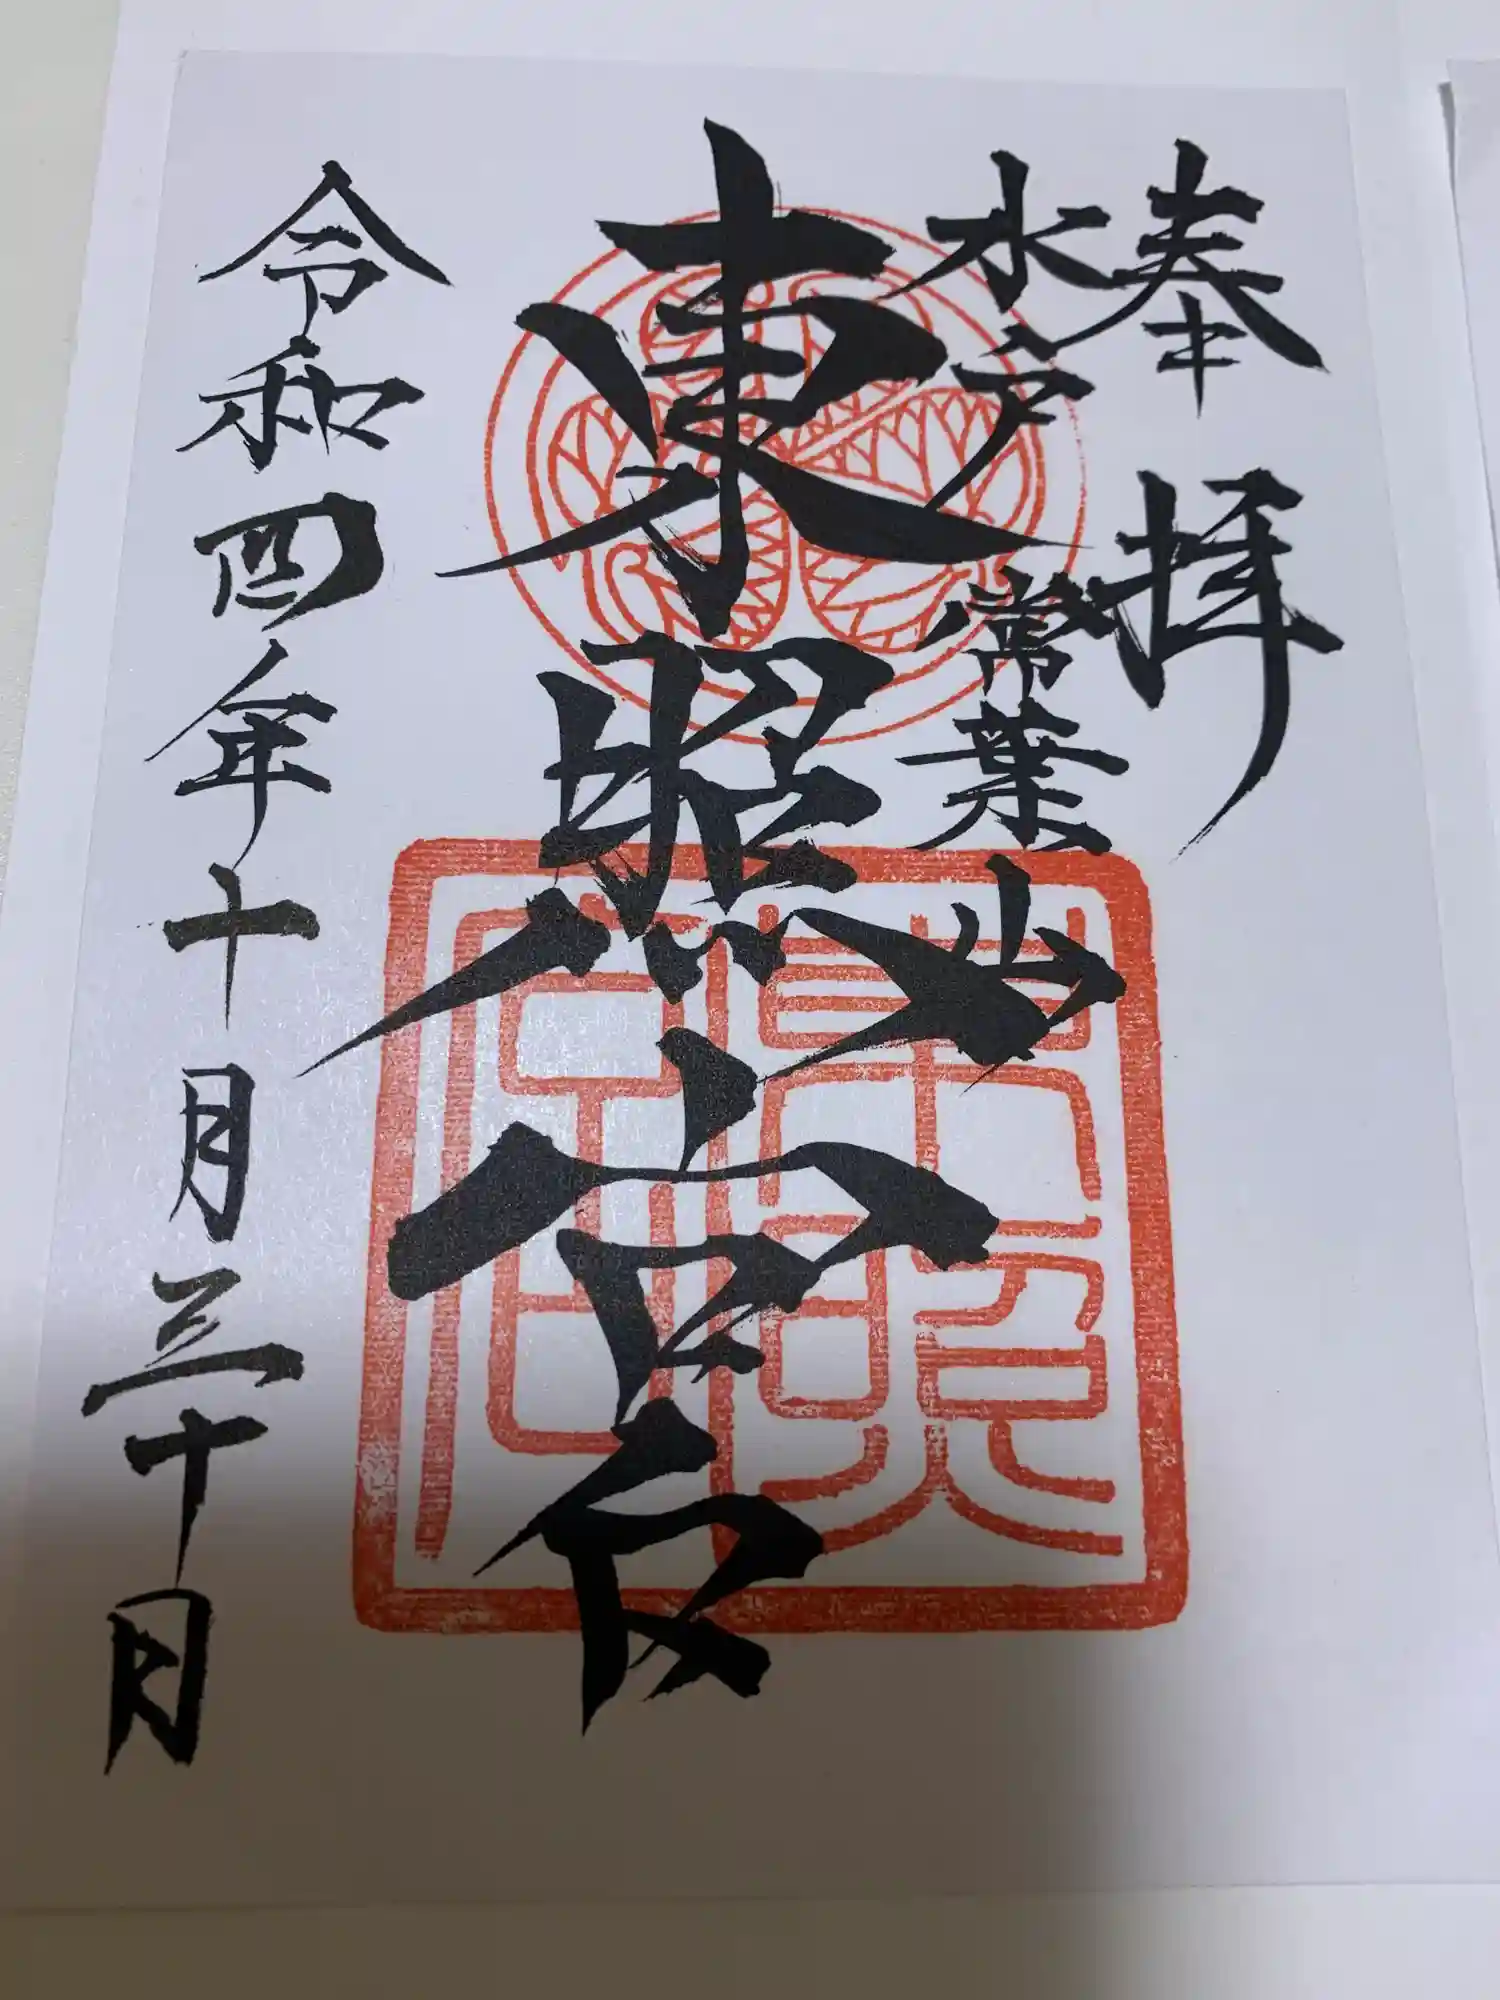 奉拝
水戸常葉山
東照宮
令和四年十月三十日
東照宮